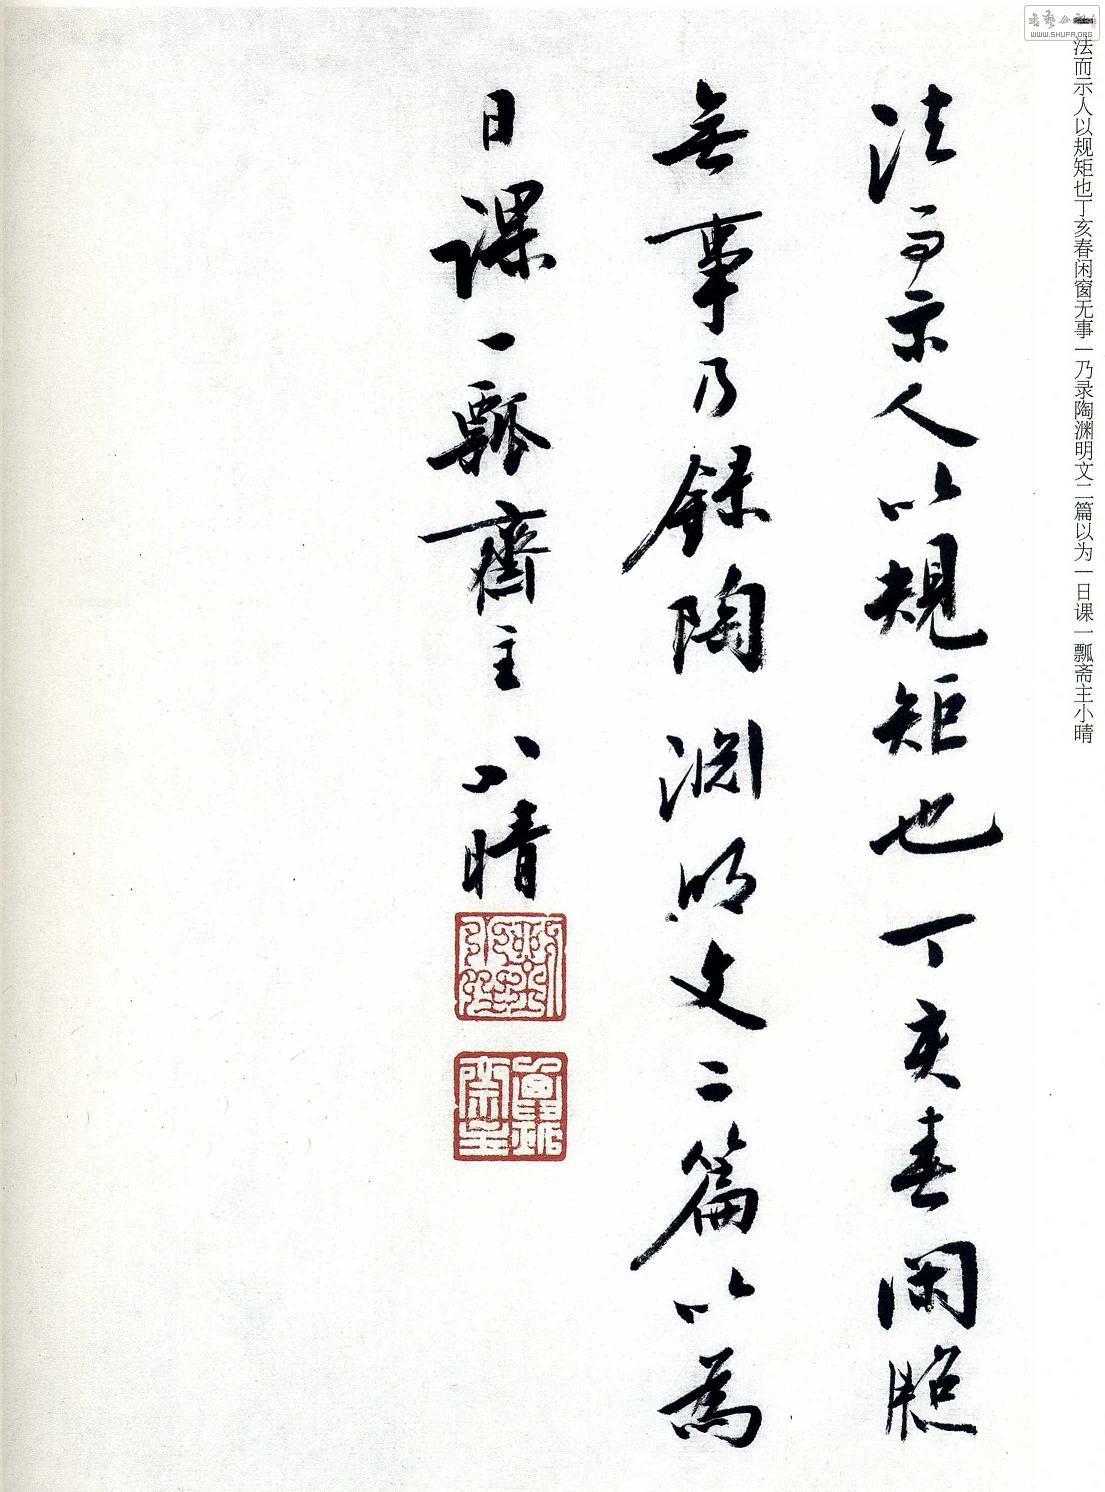 一法而示人以规矩也丁亥春闲窗无事一乃录陶渊明文二篇以为一日课一瓢斋主小晴
WWW.SHUFA.ORG
法而示人以規矩也丁亥春閑牕
無事乃録陶淵明文二篇以爲
日課一瓢齋主小晴